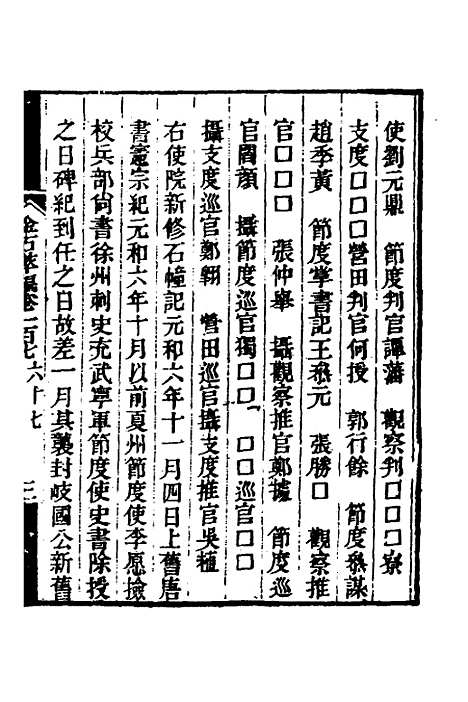 使劉元鼎　節度判官譚藩　觀察判□□□寮
支度□□□營田判官何授　郭行餘　節度叅謀
趙季黃　節度掌書記王叅元　張勝□　觀察推
官□□□□　張仲舉　攝觀察推官鄭據　節度巡
官閻顏　攝節度巡官獨□□　□□巡官□□
攝支度巡官鄭翱　營田巡官攝支度推官吳植
右使院新修石幢記元和六年十一月四日上舊唐
書憲宗紀元和六年十月以前夏州節度使李愿撿
校兵部尙書徐州刺史充武寧軍節度使史書除授
之日碑紀到任之日故差一月其襲封岐國公新舊
金石萃編卷一百七　六十七　三